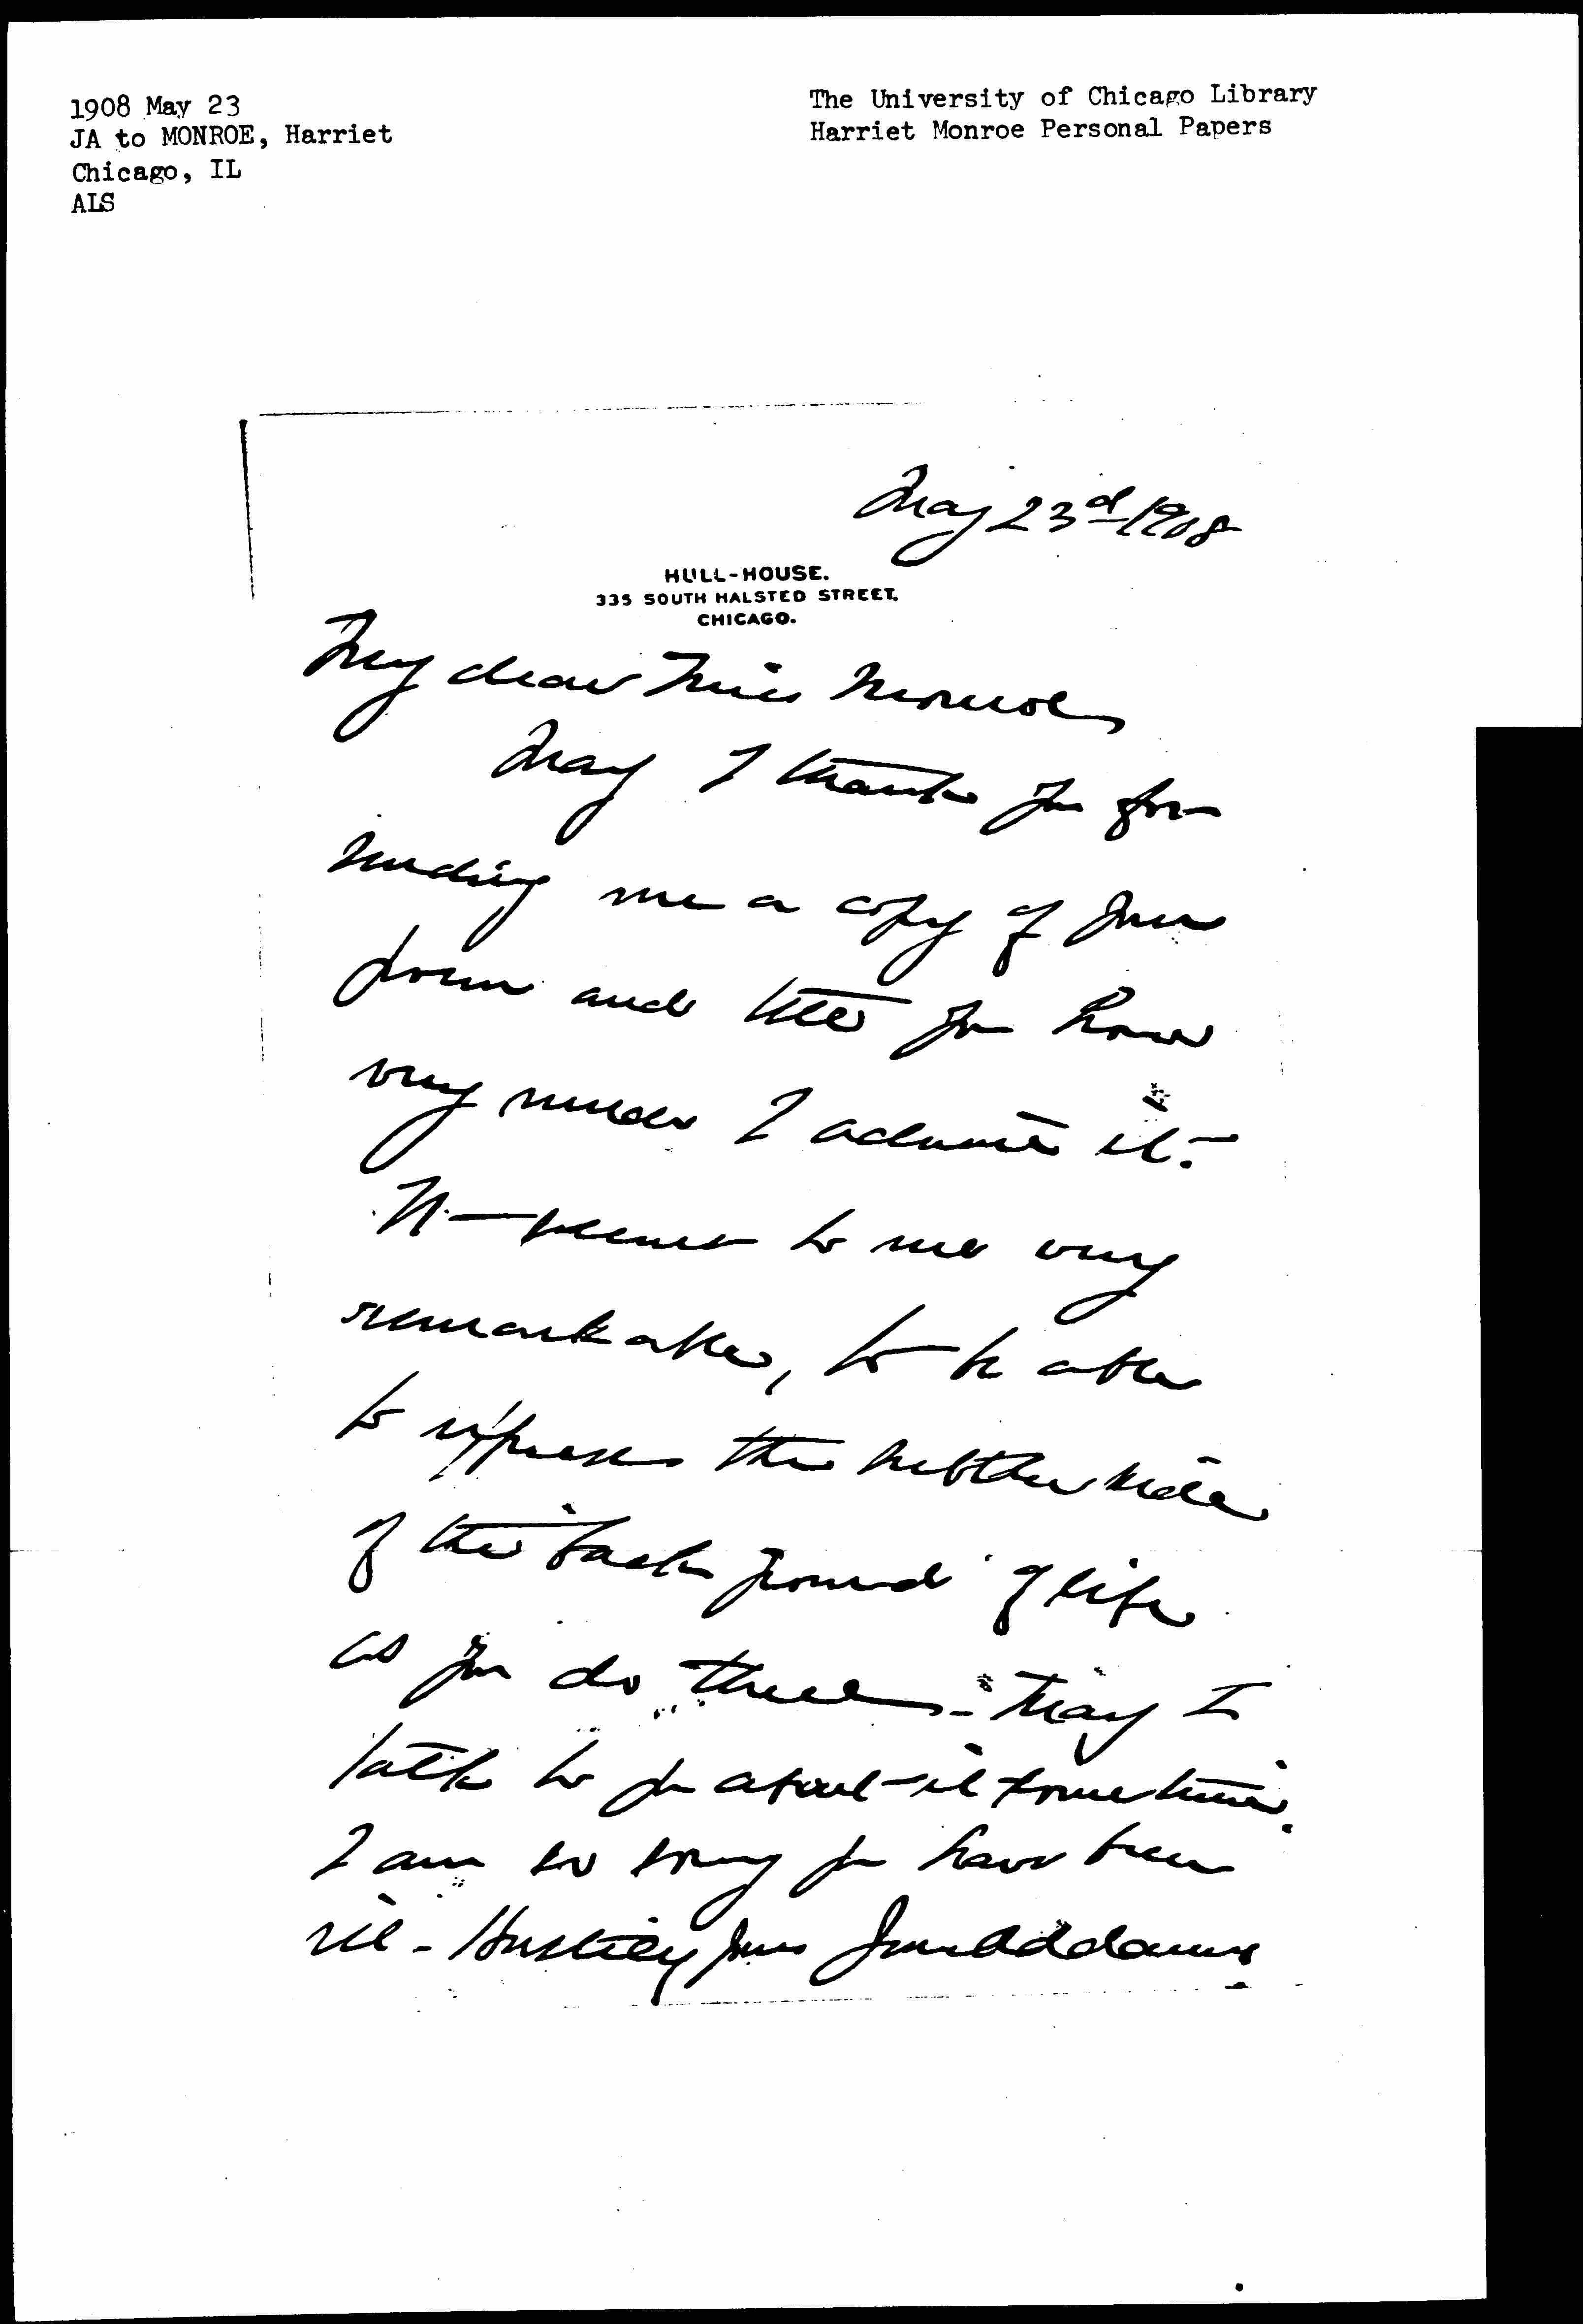 1908 May 23
JA to MONROE, Harriet
Chicago, IL
ALS
The University of Chicago Library
Harriet Monroe Personal Papers
May 23d 1908
HULL-HOUSE.
335 SOUTH HALSTED STREET.
CHICAGO.
My dear Miss Monroe
May I thank you for
sending me a copy of your
poem and tell you how
very much I admire it.
It seems to me very
remarkable, to be able
to express the subtler side
of the back ground of life
as you do these. May I
talk to you about it sometime.
I am so sorry you have been
ill - Hastily yours Jane Addams